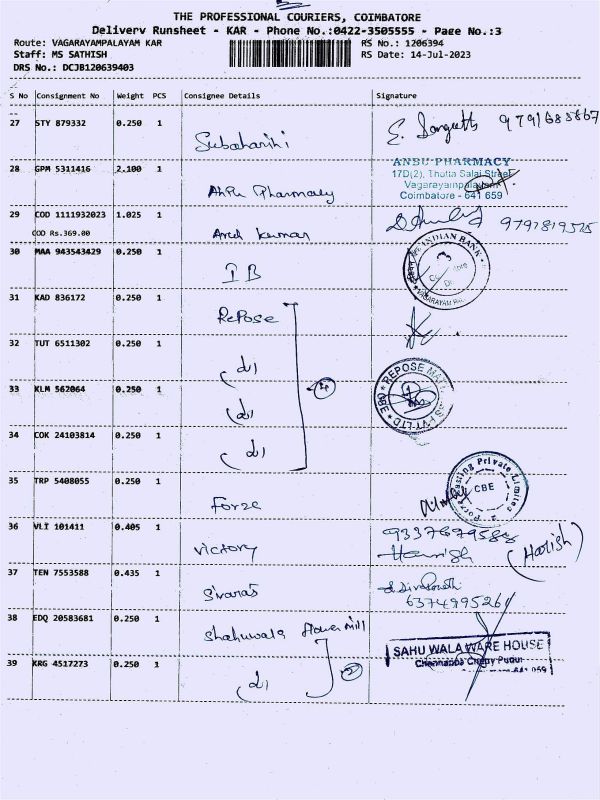 THE PROFESSIONAL COURIERS, COIMBATORE
Delivery Runsheet - KAR - Phone No.:0422-3505555 - Page No.:3
Route: VAGARAYAMPALAYAM KAR
RS No.: 1206394
Staff: MS SATHISH
RS Date: 14-Jul-2023
DRS No.: DCJB120639403
S No Consignment No Weight PCS Consignee Details Signature
27 STY 879332 0.250 1 Subaharini
9791683867
28 GPM 5311416 2.100 1 Anbu Pharmacy
ANBU PHARMACY
17D(2), Thotta Salai Street
Vagarayampalayam
Coimbatore - 641 659
29 COD 1111932023 1.025 1 Arun kumar
9791819525
COD Rs.369.00
30 MAA 943543429 0.250 1 IB
INDIAN BANK
31 KAD 836172 0.250 1 Repose
32 TUT 6511302 0.250 1
33 KLM 562064 0.250 1
REPOSE
PVT LTD
34 COK 24103814 0.250 1
35 TRP 5408055 0.250 1 Forze
Private Limited
CBE
36 VLI 101411 0.405 1 victory
Harish (Harish)
37 TEN 7553588 0.435 1 Sivaras
38 EDQ 20583681 0.250 1 Shahuwala flower mill
SAHU WALA WARE HOUSE
Chennappa Chetty Pudur
39 KRG 4517273 0.250 1